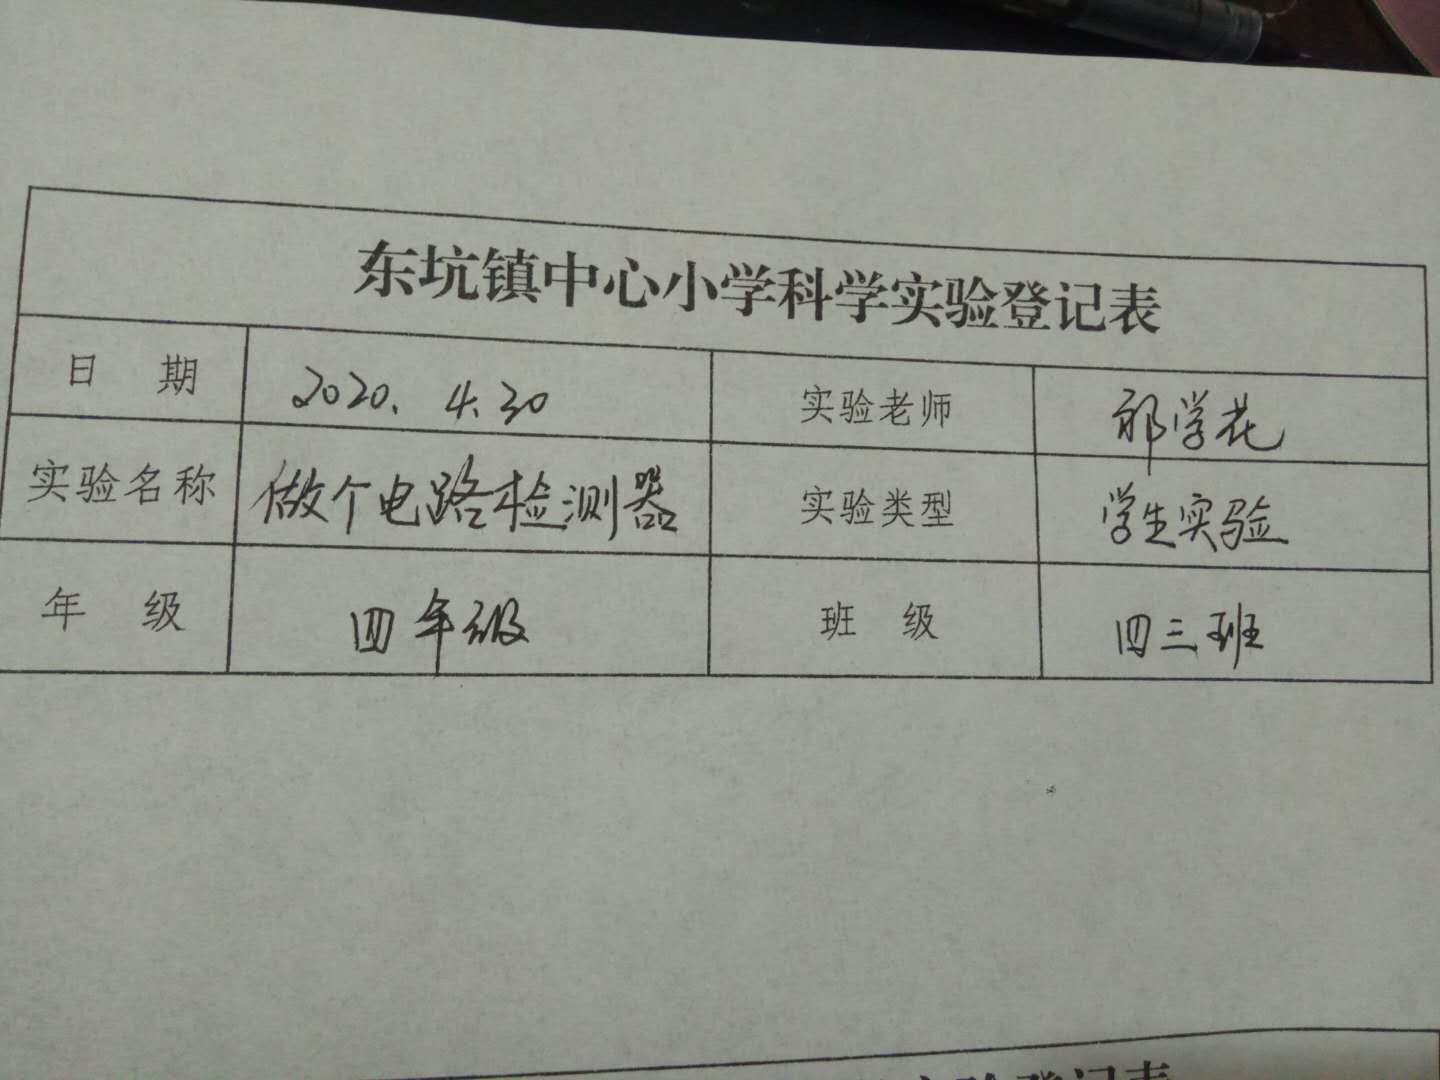 东坑镇中心小学科学实验登记表
日 期 2020. 4.30 实验老师 祁学花
实验名称 做个电路检测器 实验类型 学生实验
年 级 四年级 班 级 四三班
实验登记表